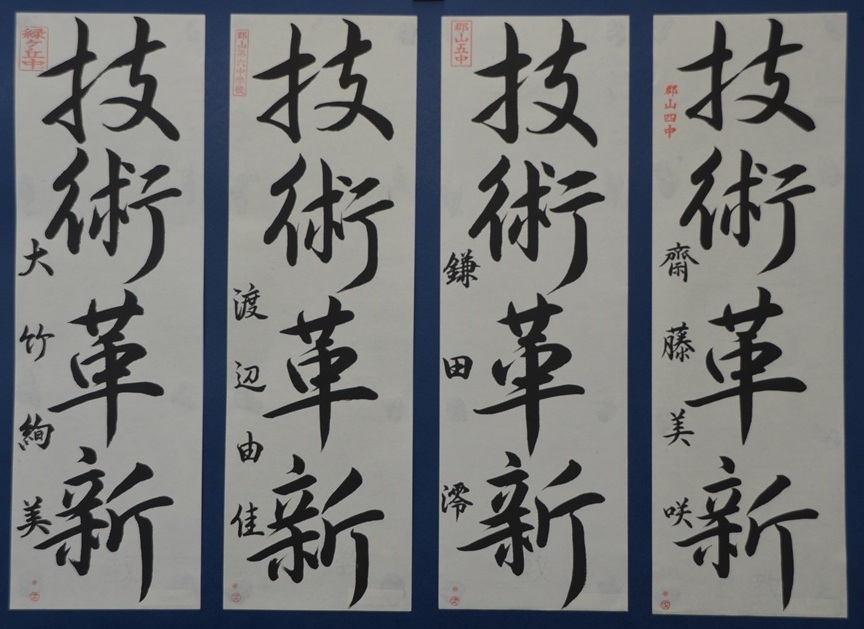 緑ケ丘中
技術革新
大竹絢美
郡山第六中学校
技術革新
渡辺由佳
郡山五中
技術革新
鎌田澪
郡山四中
技術革新
齋藤美咲